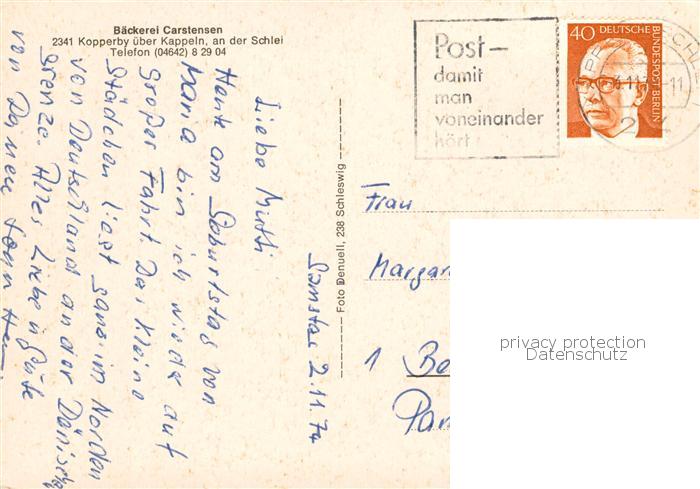 Bäckerei Carstensen
2341 Kopperby über Kappeln, an der Schlei
Telefon (04642) 8 29 04
Post-
damit
man
voneinander
hört
40 DEUTSCHE
BUNDESPOST BERLIN
Foto Denuell, 238 Schleswig
Samstag 2.11.74
Liebe Mutti
Heute am Geburtstag von
Maria bin ich wieder auf
Großer Fahrt. Das Kleine
Städchen liegt ganz im Norden
von Deutschland an der Dänischen
Grenze. Alles Liebe u Gute
von Deinem Sohn
Frau
Margar
1 Be
Pan
privacy protection
Datenschutz